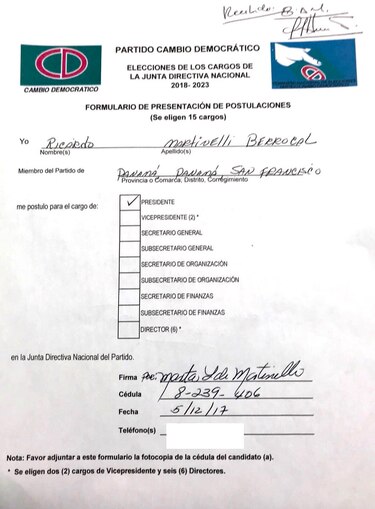 Recibido 8:30 A.M.
CD
CAMBIO DEMOCRATICO
PARTIDO CAMBIO DEMOCRÁTICO
ELECCIONES DE LOS CARGOS DE
LA JUNTA DIRECTIVA NACIONAL
2018- 2023
FORMULARIO DE PRESENTACIÓN DE POSTULACIONES
(Se eligen 15 cargos)
Yo Ricardo Martinelli Berrocal
Nombre(s) Apellido(s)
Miembro del Partido de Panamá, Panamá, San Francisco
Provincia o Comarca, Distrito, Corregimiento
me postulo para el cargo de: ✓ PRESIDENTE
VICEPRESIDENTE (2) *
SECRETARIO GENERAL
SUBSECRETARIO GENERAL
SECRETARIO DE ORGANIZACIÓN
SUBSECRETARIO DE ORGANIZACIÓN
SECRETARIO DE FINANZAS
SUBSECRETARIO DE FINANZAS
DIRECTOR (6) *
en la Junta Directiva Nacional del Partido.
Firma Por: Marta L de Martinelli
Cédula 8-239-406
Fecha 5/12/17
Teléfono(s)
Nota: Favor adjuntar a este formulario la fotocopia de la cédula del candidato (a).
* Se eligen dos (2) cargos de Vicepresidente y seis (6) Directores.